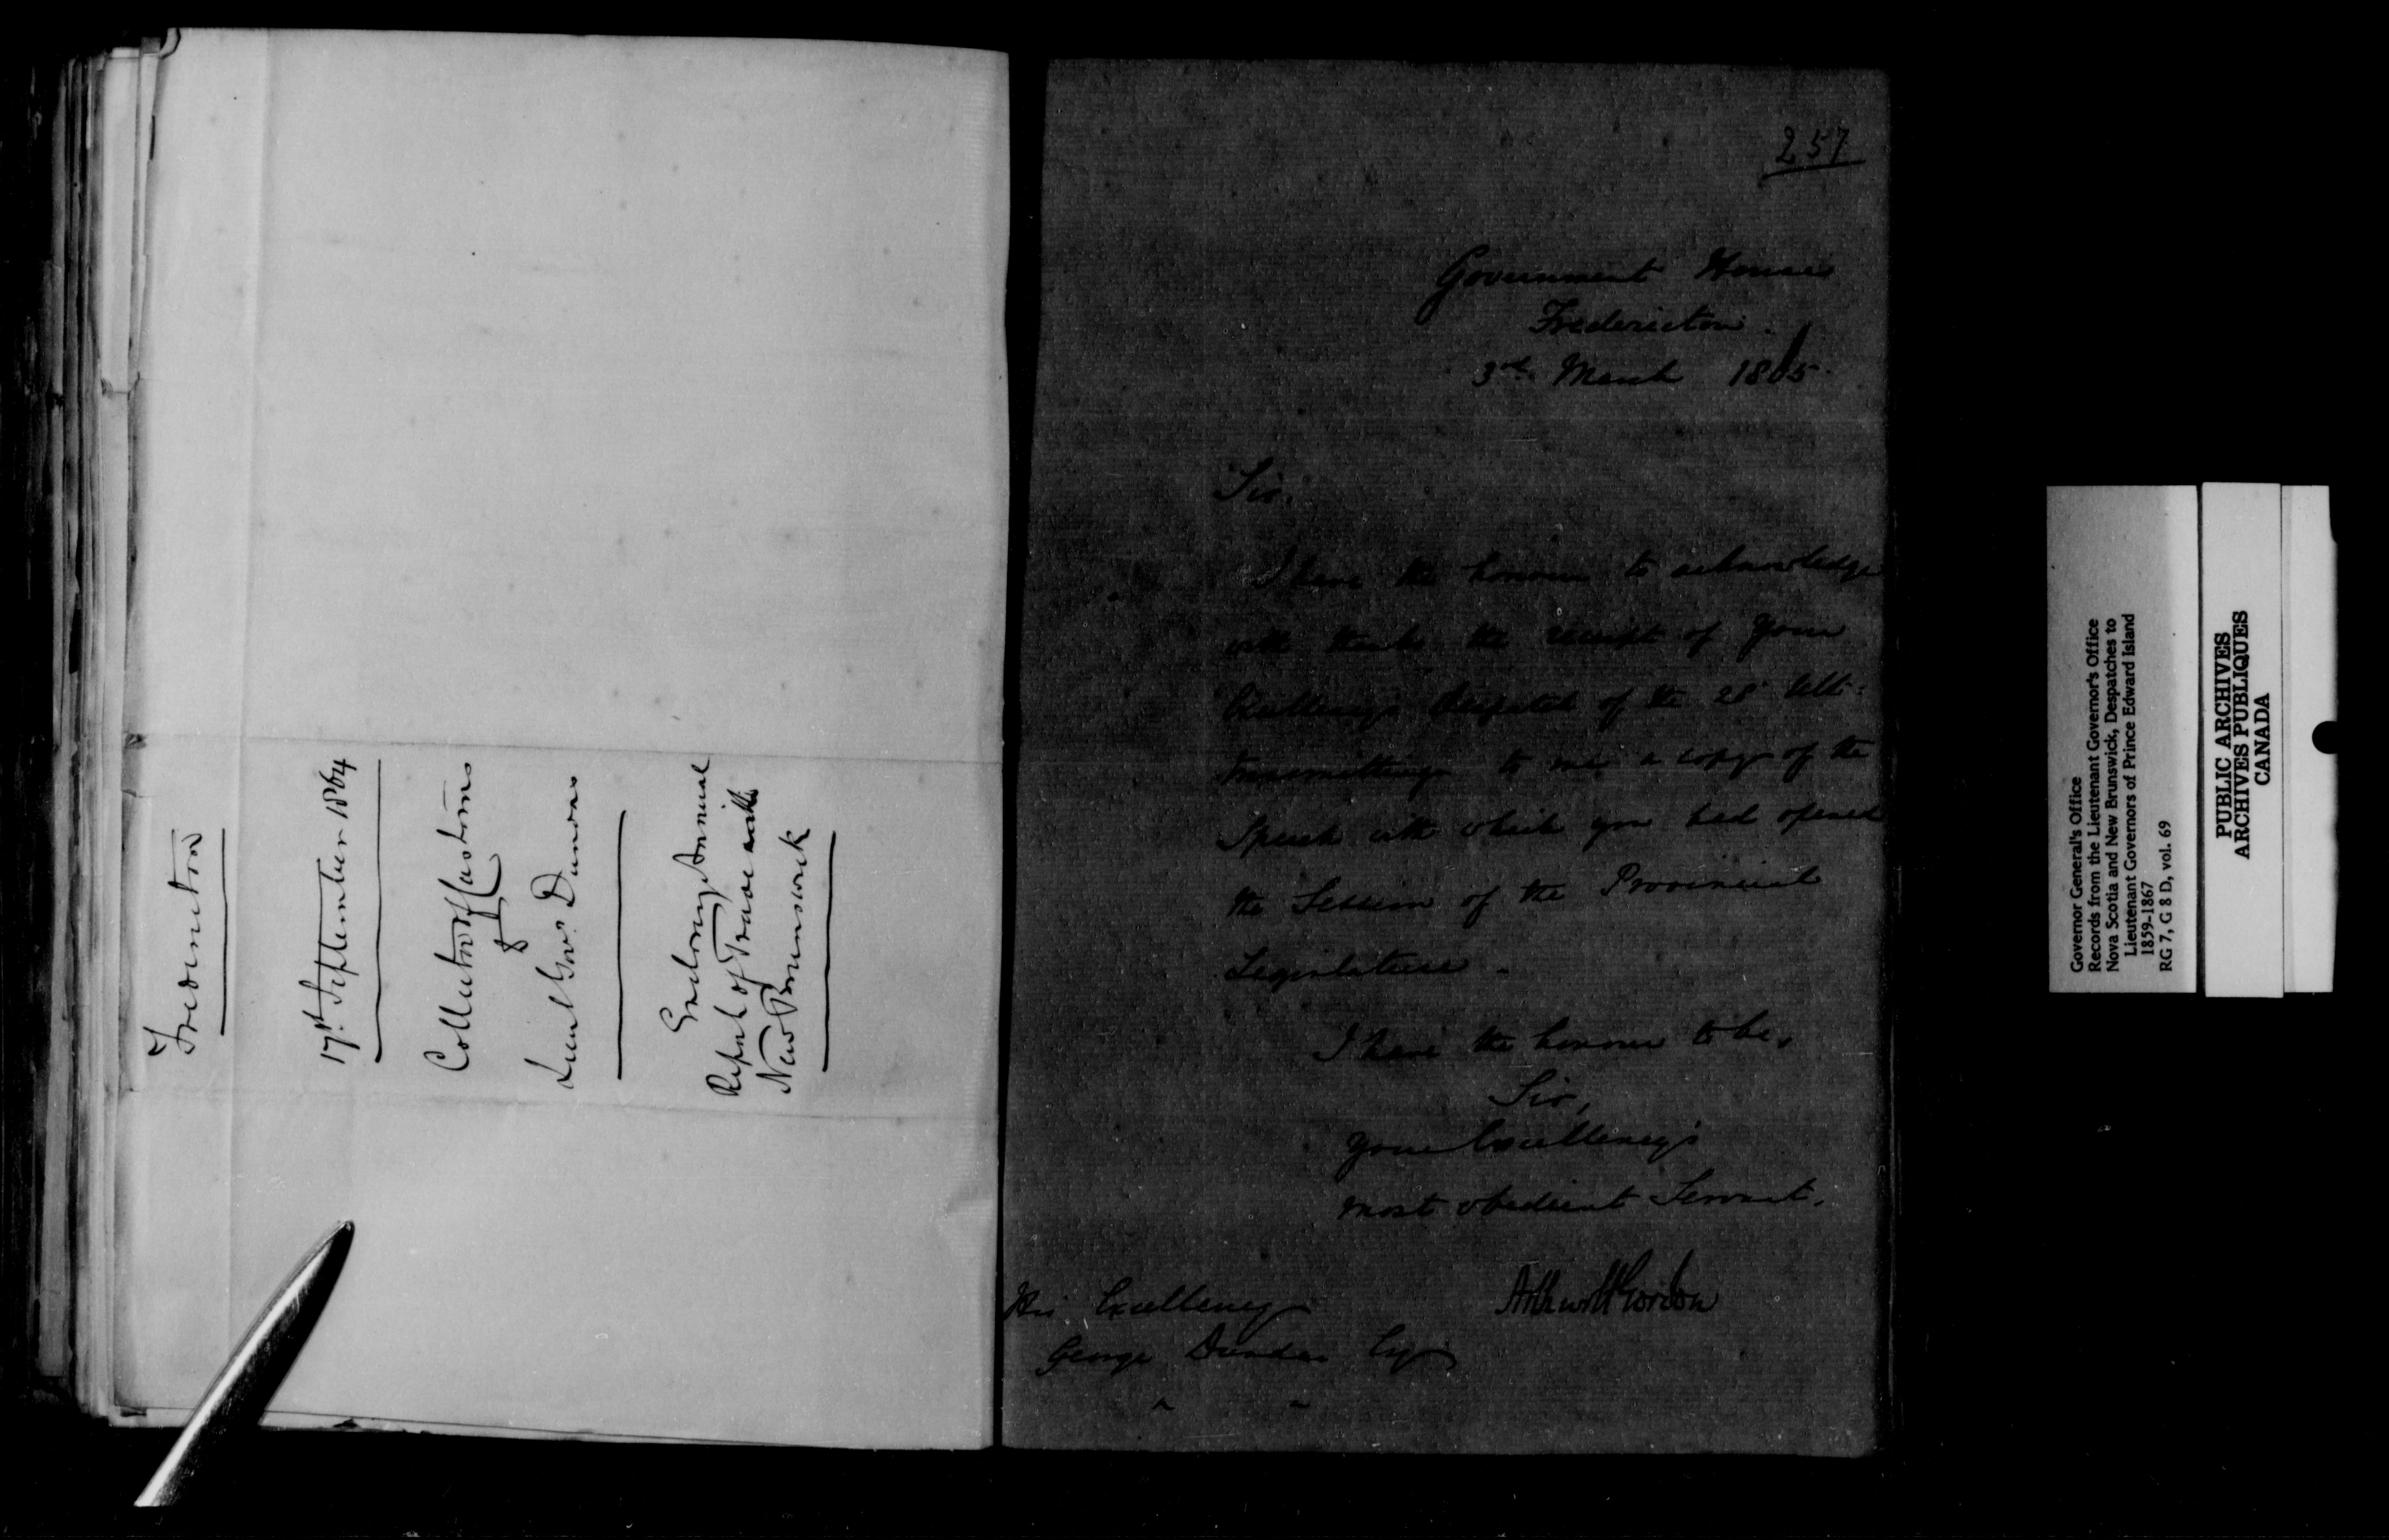 Fredericton
17th September 1864
Collector of Customs
to
Lieut Govr. Dundas
Enclosing Annual
Report of Trade with
New Brunswick
257
Government House
Fredericton.
3rd March 1865.
Sir.
I have the honour to acknowledge
with thanks the receipt of Your
Excellency's Despatch of the 28th Ult:
transmitting to me a copy of the
Speech with which you had opened
the Session of the Provincial
Legislature.
I have the honour to be,
Sir,
Your Excellency's
most obedient Servant.
Arthur H Gordon
His Excellency
George Dundas Esq
" "
Governor General's Office
Records from the Lieutenant Governor's Office
Nova Scotia and New Brunswick, Despatches to
Lieutenant Governors of Prince Edward Island
1859-1867
RG 7, G 8 D, vol. 69
PUBLIC ARCHIVES
ARCHIVES PUBLIQUES
CANADA